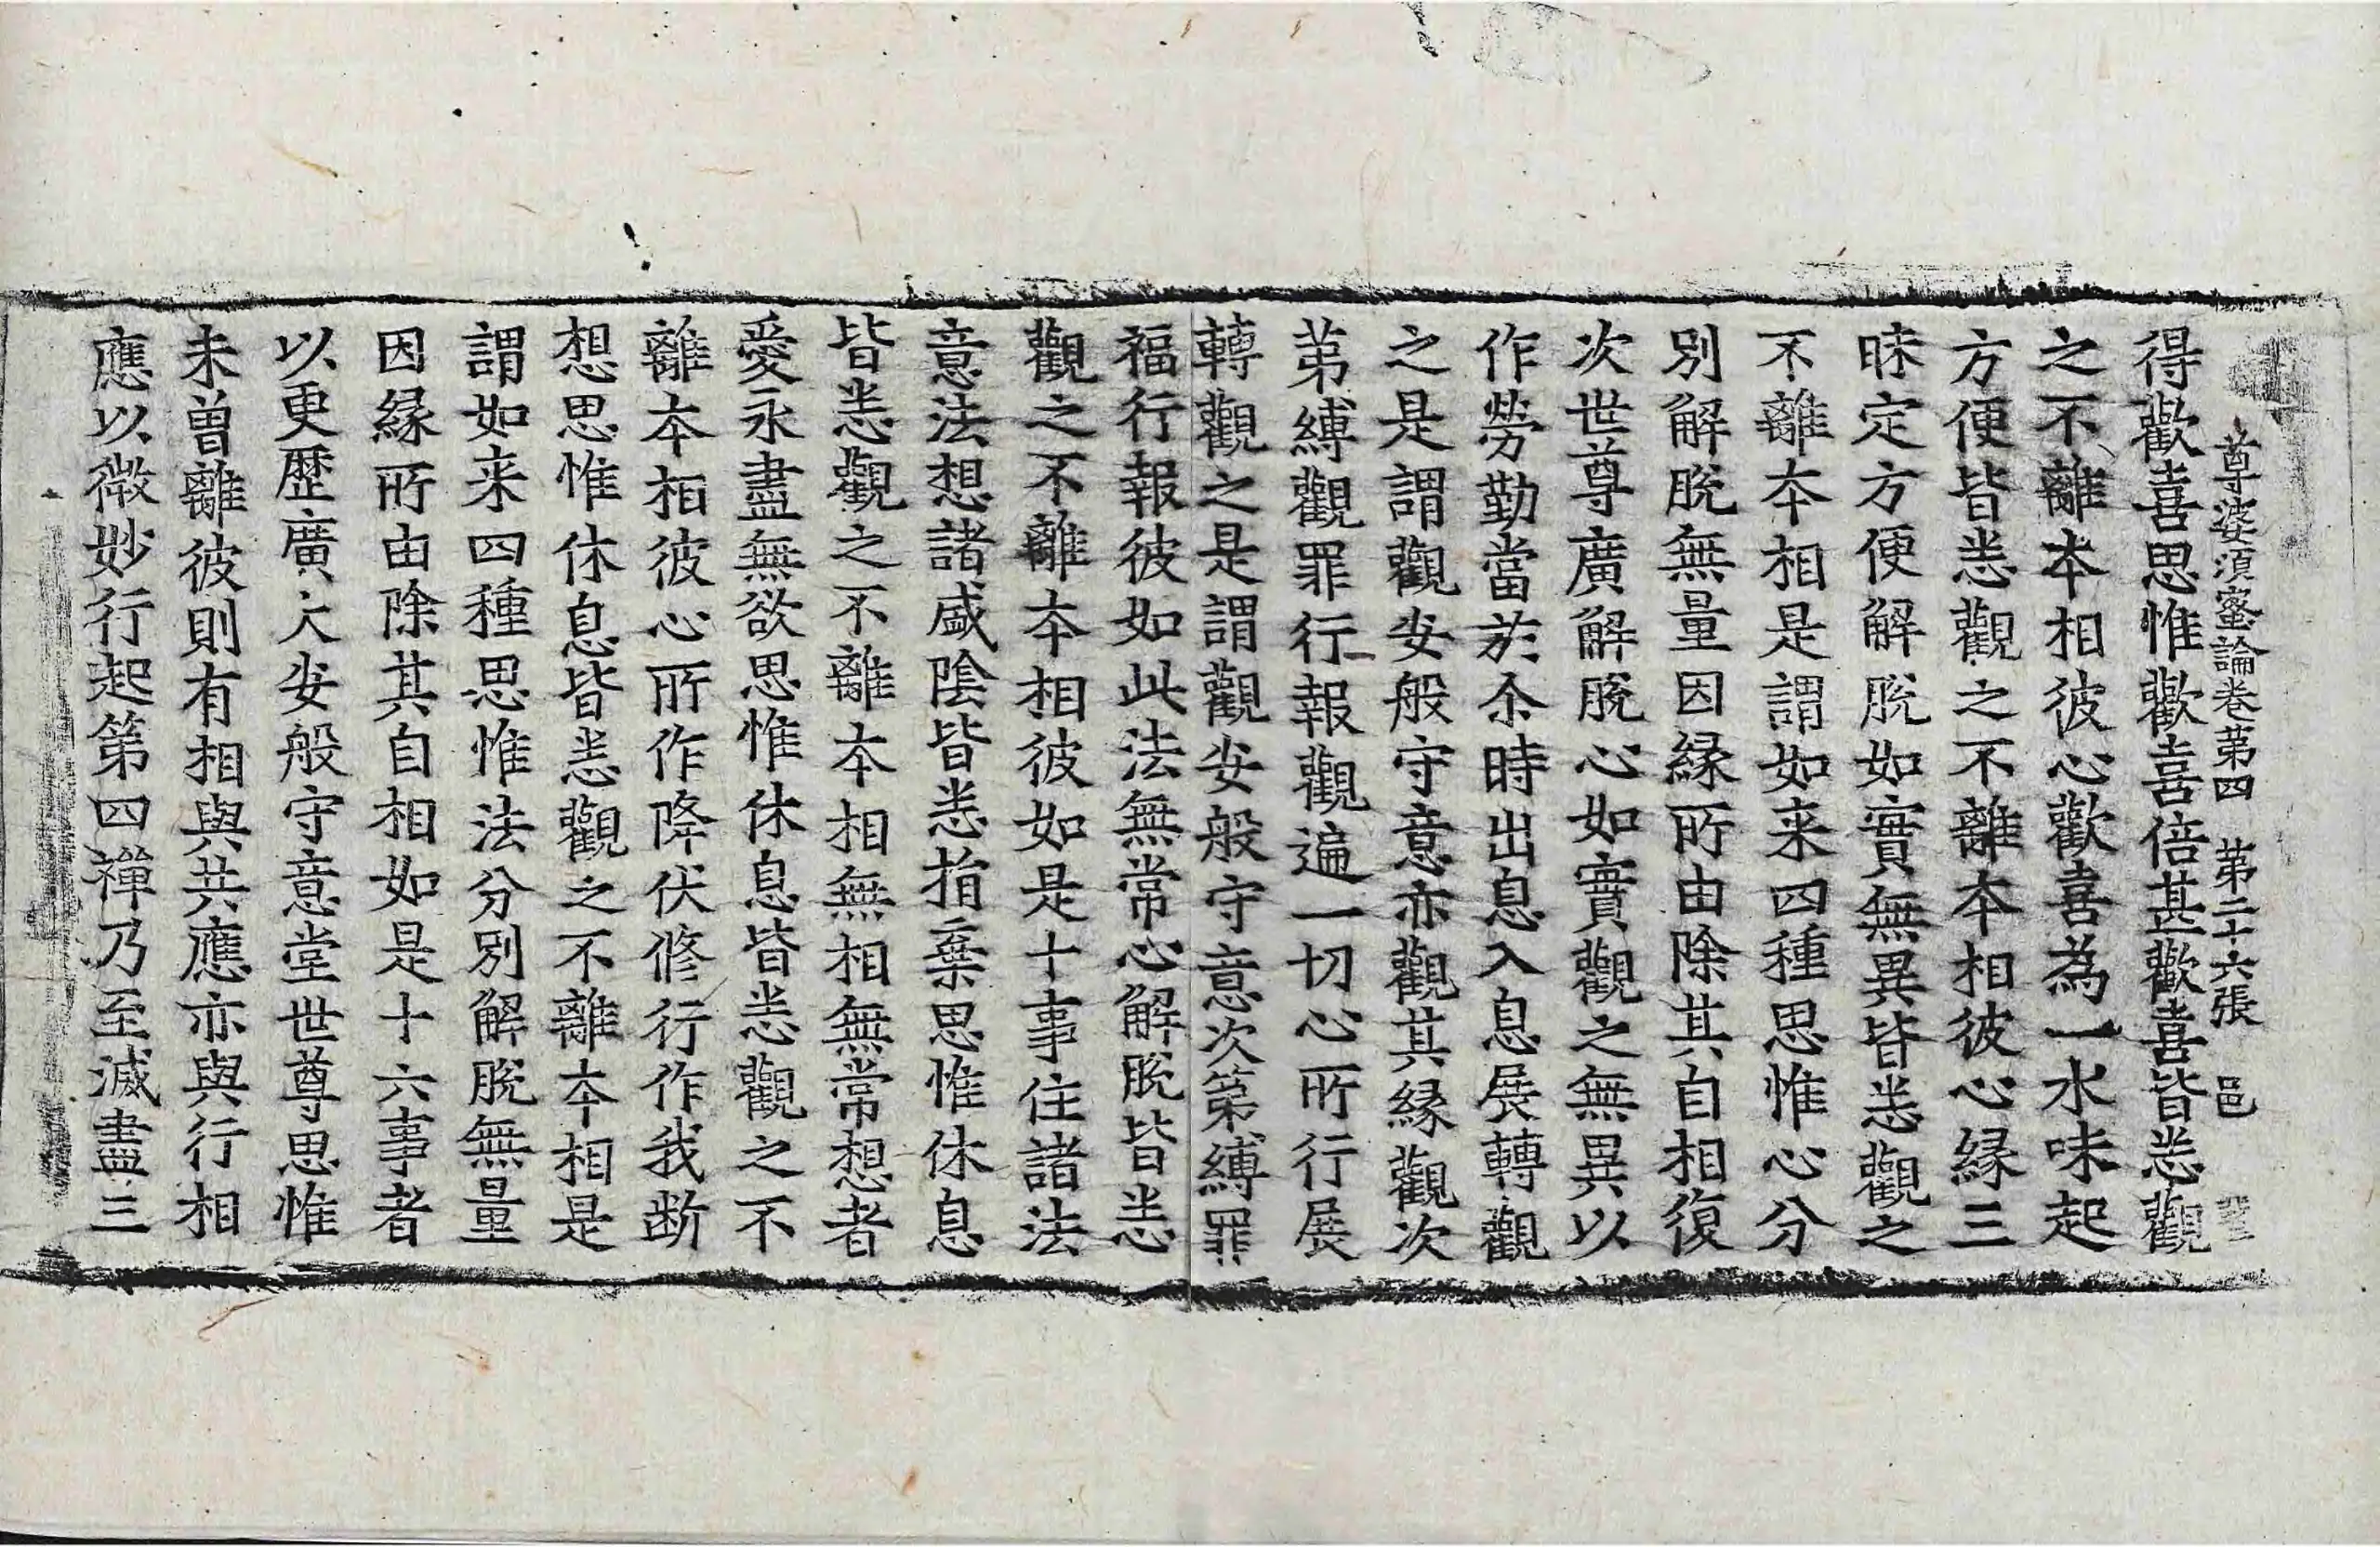 尊婆須蜜論卷第四　第二十六張　邑
得歡喜思惟歡喜倍甚歡喜皆悉觀
之不離本相彼心歡喜為一水味起
方便皆悉觀之不離本相彼心緣三
昧定方便解脫如實無異皆悉觀之
不離本相是謂如来四種思惟心分
別解脫無量因緣所由除其自相復
次世尊廣解脫心如實觀之無異以
作勞勤當於尒時出息入息展轉觀
之是謂觀安般守意亦觀其緣觀次
第縛觀罪行報觀遍一切心所行展
轉觀之是謂觀安般守意次第縛罪
福行報彼如此法無常心解脫皆悉
觀之不離本相彼如是十事住諸法
意法想諸盛陰皆悉捐棄思惟休息
皆悉觀之不離本相無相無常想者
愛永盡無欲思惟休息皆悉觀之不
離本相彼心所作降伏修行作我斷
想思惟休息皆悉觀之不離本相是
謂如来四種思惟法分別解脫無量
因緣所由除其自相如是十六事者
以更歷廣大安般守意堂世尊思惟
未曾離彼則有相與共應亦與行相
應以微妙行起第四禪乃至滅盡三